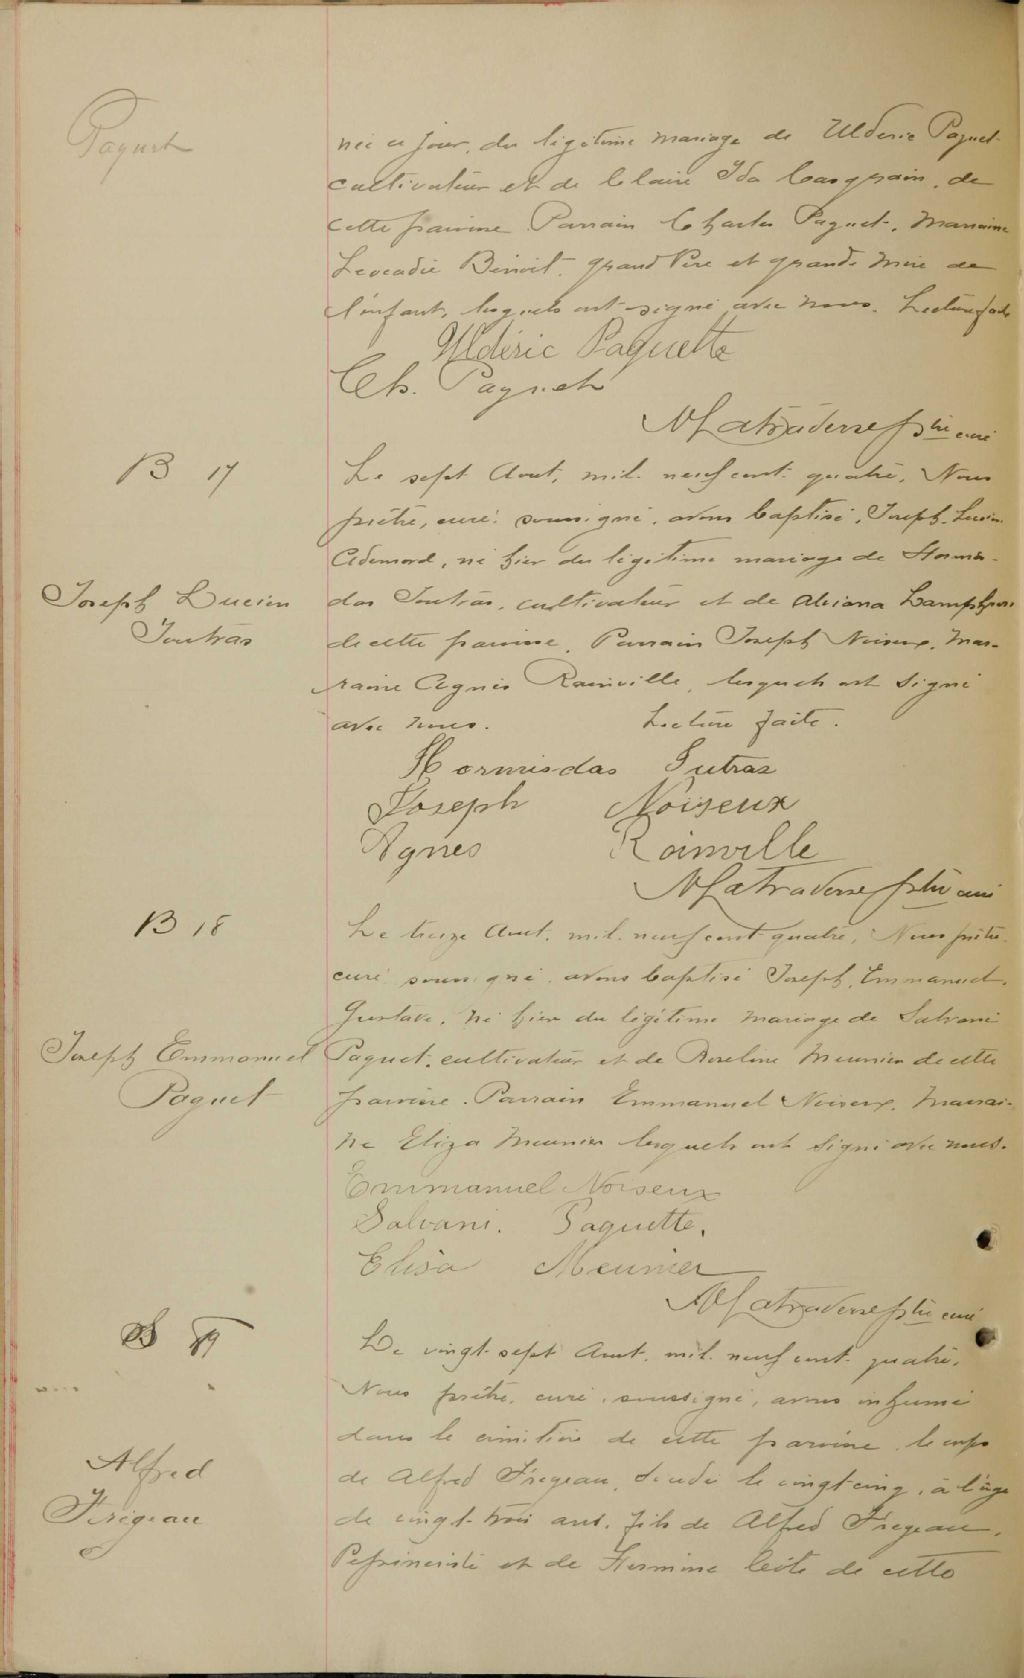 Paquet
née ce jour, du légitime mariage de Uldéric Paquet
cultivateur et de Claire Ida Casgrain, de
cette paroisse. Parrain Charles Paquet, Marraine
Léocadie Benoit, grand Père et grande mère de
l'enfant, lesquels ont signé avec nous. Lecture faite
Uldéric Paquette
Ch. Paquet
ptre curé
B 17
Le sept Aout, mil neuf cent quatre, Nous
prêtre, curé soussigné, avons baptisé, Joseph, Lucien
né hier du légitime mariage de Hormis-
Joseph Lucien
Joutras
das Joutras, cultivateur et de
de cette paroisse. Parrain Joseph Noiseux, Mar-
raine Agnès Rainville, lesquels ont signé
avec nous. Lecture faite.
Hormisdas Jutras
Joseph Noiseux
Agnes Rainville
ptre curé
B 18
Le treize Aout, mil neuf cent quatre, Nous prêtre
curé soussigné, avons baptisé Joseph, Emmanuel,
Gustave, né hier du légitime mariage de Salvani
Joseph Emmanuel
Paquet
Paquet, cultivateur et de Roseline Meunier de cette
paroisse. Parrain Emmanuel Noiseux, Marrai-
ne Eliza Meunier lesquels ont signé avec nous.
Emmanuel Noiseux
Salvani. Paquette.
Elisa Meunier
ptre curé
S
Le vingt-sept Aout, mil neuf cent quatre,
Nous prêtre, curé, soussigné, avons inhumé
dans le cimetière de cette paroisse, le corps
Alfred
Frégeau
de Alfred Frégeau, décédé le vingt cinq, à l'âge
de vingt-trois ans, fils de Alfred Frégeau,
et de Hermine de cette